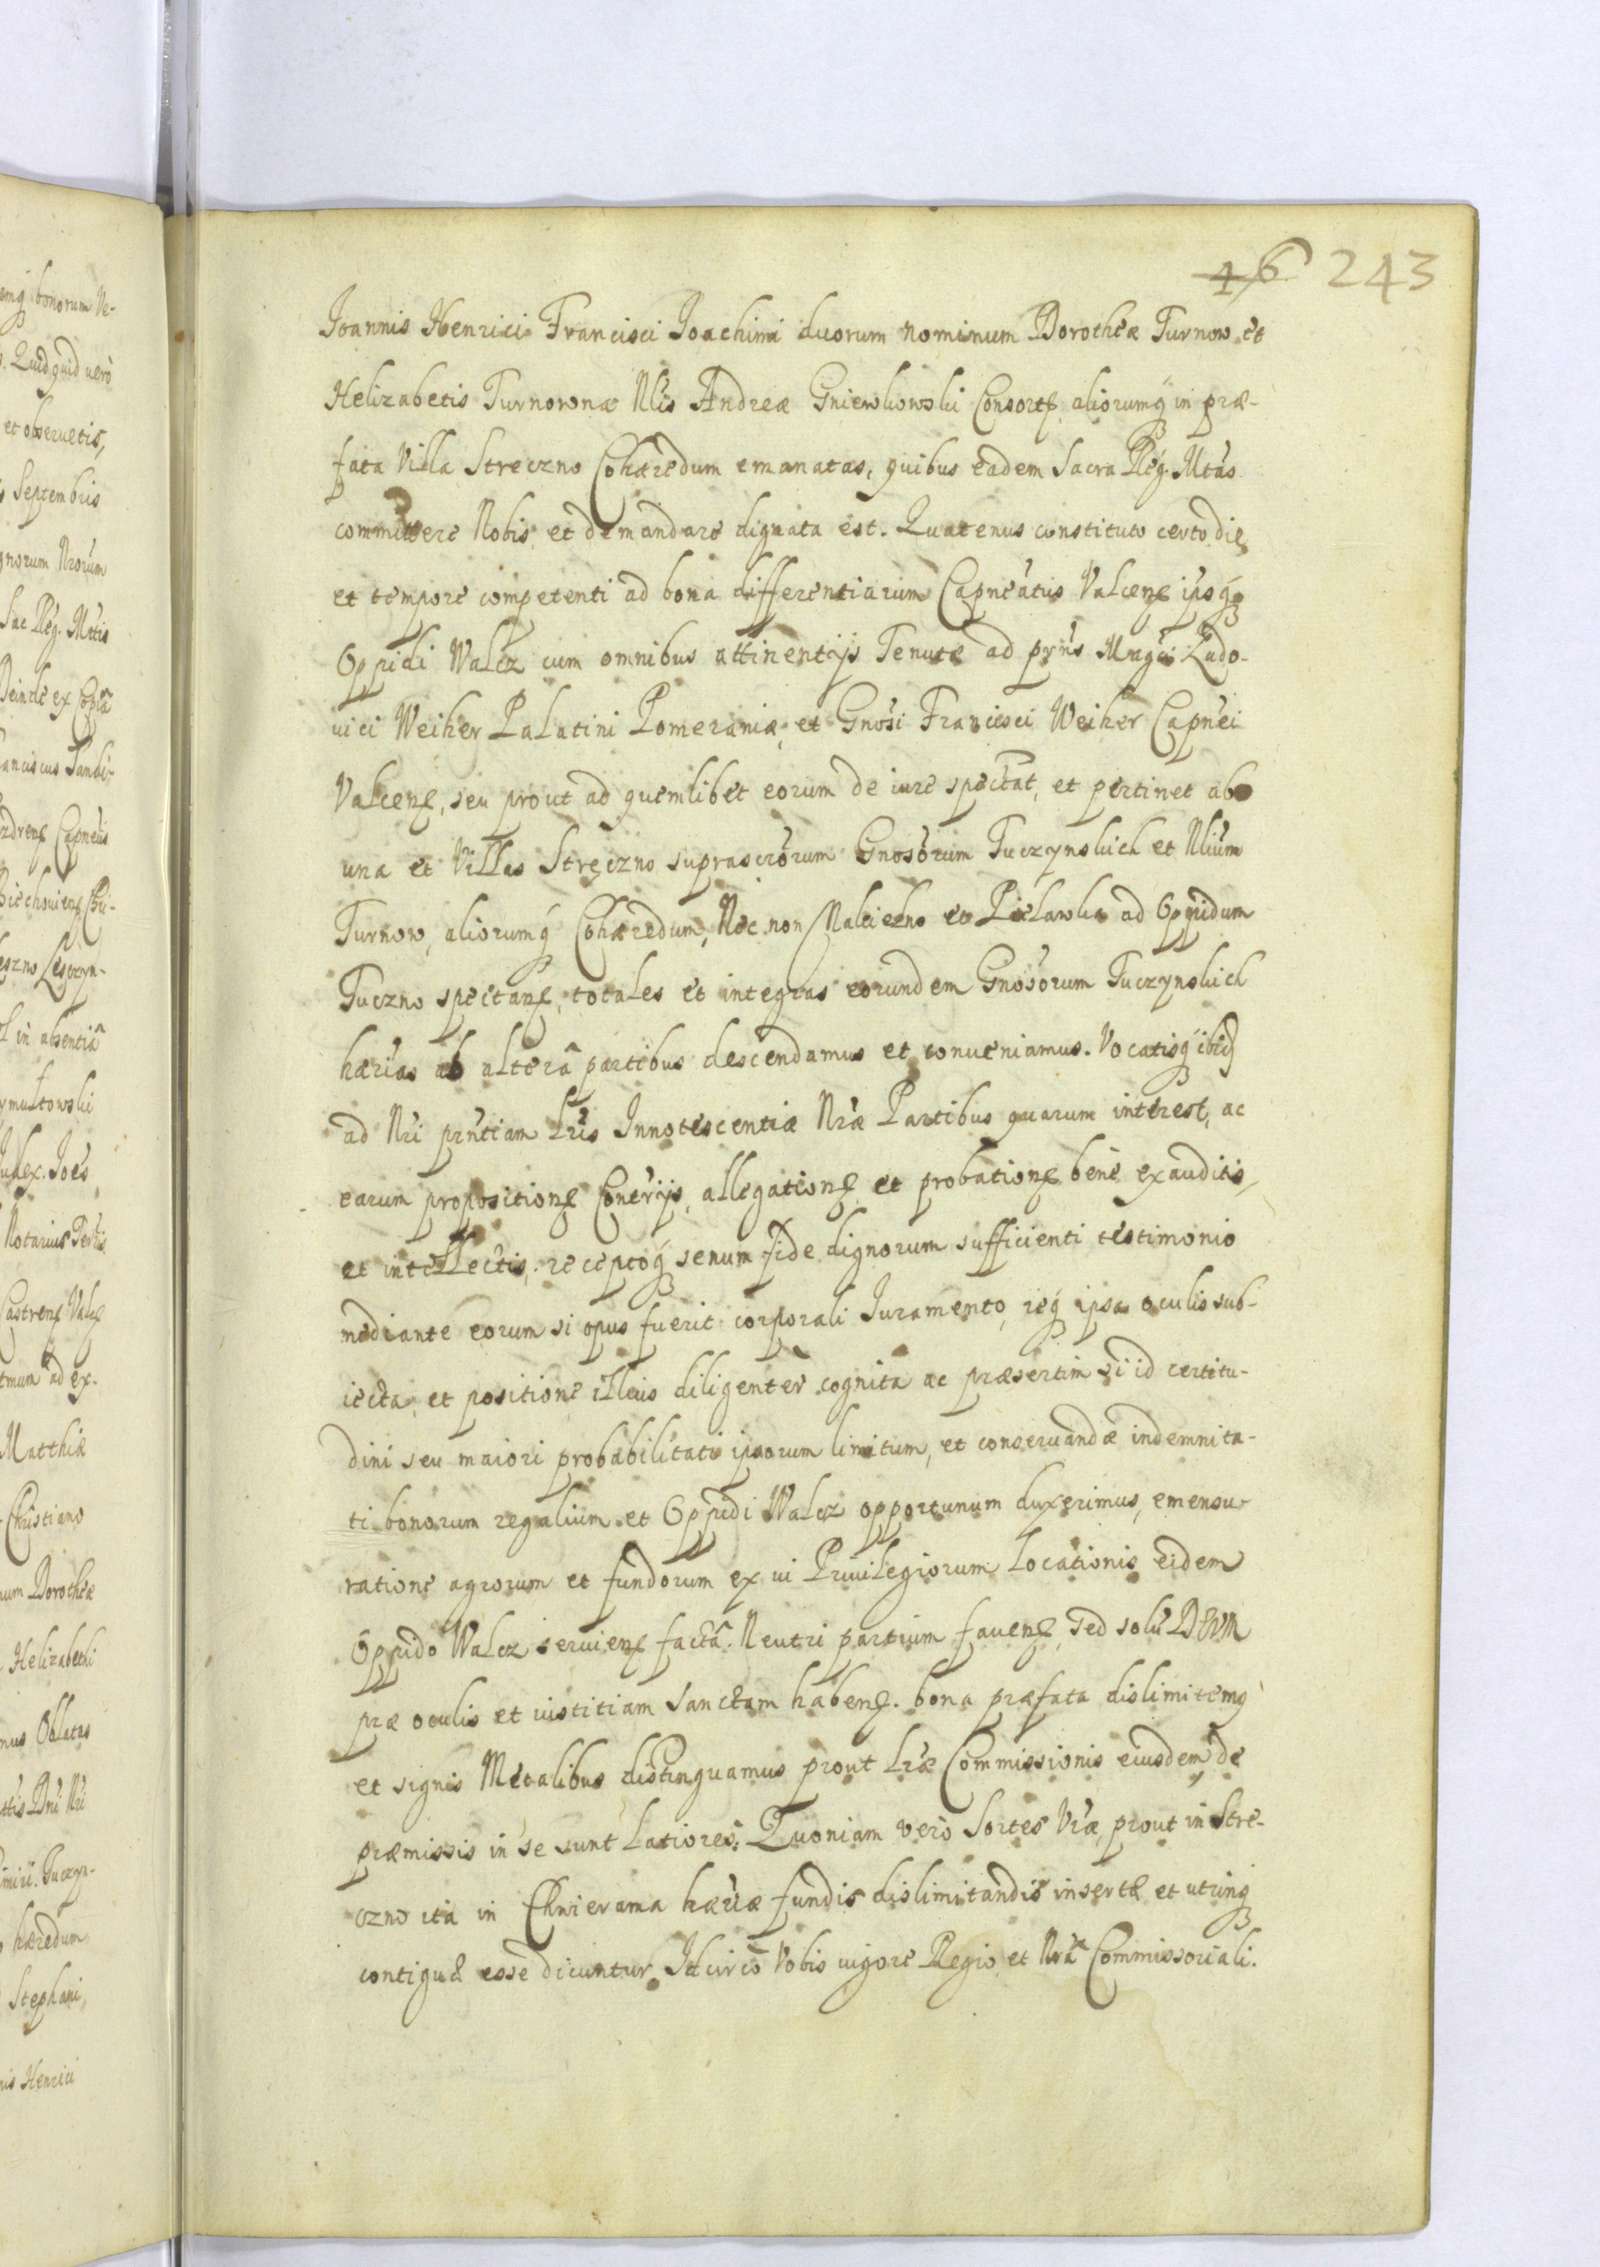 emq bonorum Ve-
. Quidquid vero
et observetis,
Septembris
gnorum Nrorum
Sac Reg. Mttis
Deinde ex Copia
anciscus Sandi-
Capneus
eszno Leszczyn-
in absentiâ
ymultowski
Judex. Joes
Notarius Terris
Castrenẜ Valcẜ
ad ex-
Matthiæ
Christiano
um Dorotheæ
Helizabethi
mus Oblatas
ttis Dni Nri
Tuczyn-
hæredum
Stephani
nis Henrici
46 243
Ioannis Henrici Francisci Joachimi duorum nominum Dorotheæ Turnow et
Helizabetis Turnowna Nlis Andreæ Gniewkowski Consortẜ aliorumq́ in præ-
fata Villa Streczno Cohæredum emanatas, quibus eadem Sacra Reg. Mtas
committere Nobis et demandare dignata est. Quatenus constituto certo die
et tempore competenti ad bona differentiarum Capneatus Valcenẜ ipsiq́
Oppidi Walcz cum omnibus attinentijs Tenutæ ad pñs Magci Ludo-
uici Weiher Palatini Pomeraniæ, et Gnosi Francisci Weiher Capnei
Valcenẜ, seu prout ad quemlibet eorum de iure spectat, et pertinet ab
una et Villas Stręczno suprascrorum Gnosorum Tuczynskich et Nlium
Turnow, aliorumq́ Cohæredum, Nec non Małciezno et Pieławka ad Oppidum
Tuczno spectanẜ, totales et integras eorundem Gnosorum Tuczynskich
hærias ab alterâ partibus descendamus et conueniamus. Vocatisq́ ibid
ad Nri prñtiam Lris Innotescentiæ Nræ Partibus quarum interest, ac
earum propositionẜ Contrijs, allegationẜ et probationẜ bene exauditis,
et intellectis, receptoq́ senum fide dignorum sufficienti testimonio
mediante eorum si opus fuerit corporali Iuramento, req́ ipsa oculis sub-
iecta, et positione illius diligenter cognita ac præsertim si id certitu-
dini seu maiori probabilitati ipsorum limitum, et conseruandæ indemnita-
ti bonorum regalium et Oppidi Walcz opportunum duxerimus, emensu-
ratione agrorum et fundorum ex ui Priuilegiorum Locationis eidem
Oppido Walcz seruienẜ factâ. Neutri partium fauenẜ, sed solũ DEVM
præ oculis et iustitiam sanctam habenẜ. bona præfata dislimitemq́
et signis Metalibus distinguamus prout Lræ Commissionis eiusdem de
præmissis in se sunt Latiores. Quoniam vero Sortes Vræ, prout in Stre-
czno ita in Chnierama hæriæ fundis dislimitandis insertæ et utrinq́
contiguæ esse dicuntur. Idcirco Vobis vigore Regio et Nrâ Commissoriali.